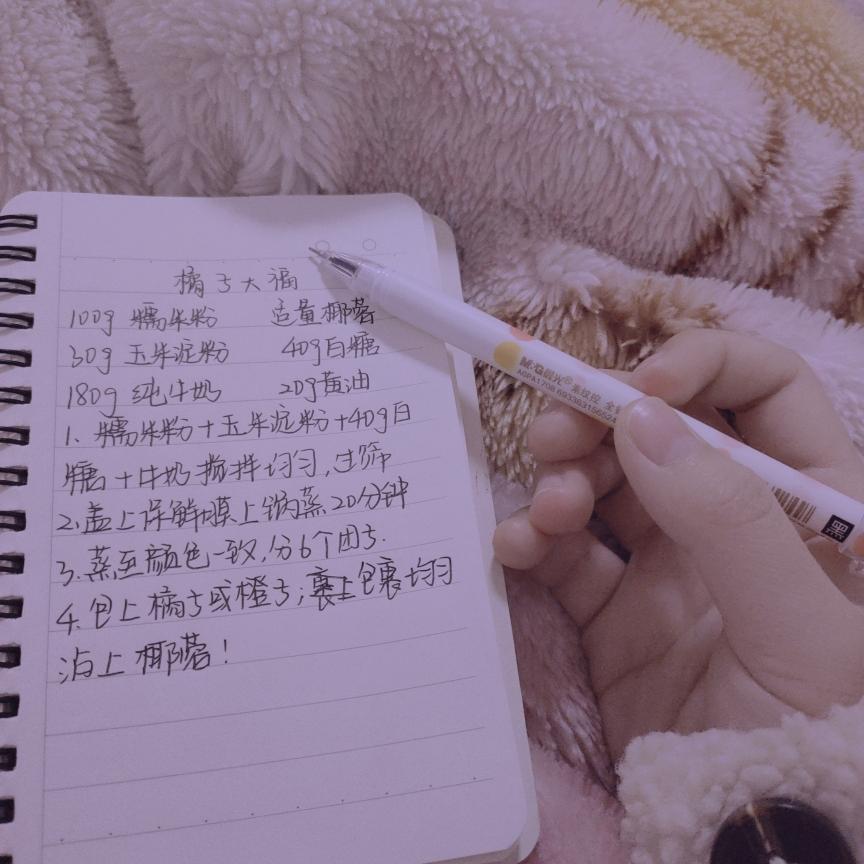 橘子大福
100g 糯米粉 适量椰蓉
30g 玉米淀粉 40g白糖
180g 纯牛奶 20g黄油
1. 糯米粉+玉米淀粉+40g白
糖+牛奶搅拌均匀,过筛
2.盖上保鲜膜上锅蒸20分钟
3.蒸至颜色一致,分6个团子.
4.包上橘子或橙子;裹上包裹均匀
沾上椰蓉!
M&G晨光® 素纹控
AGPA1708
黑